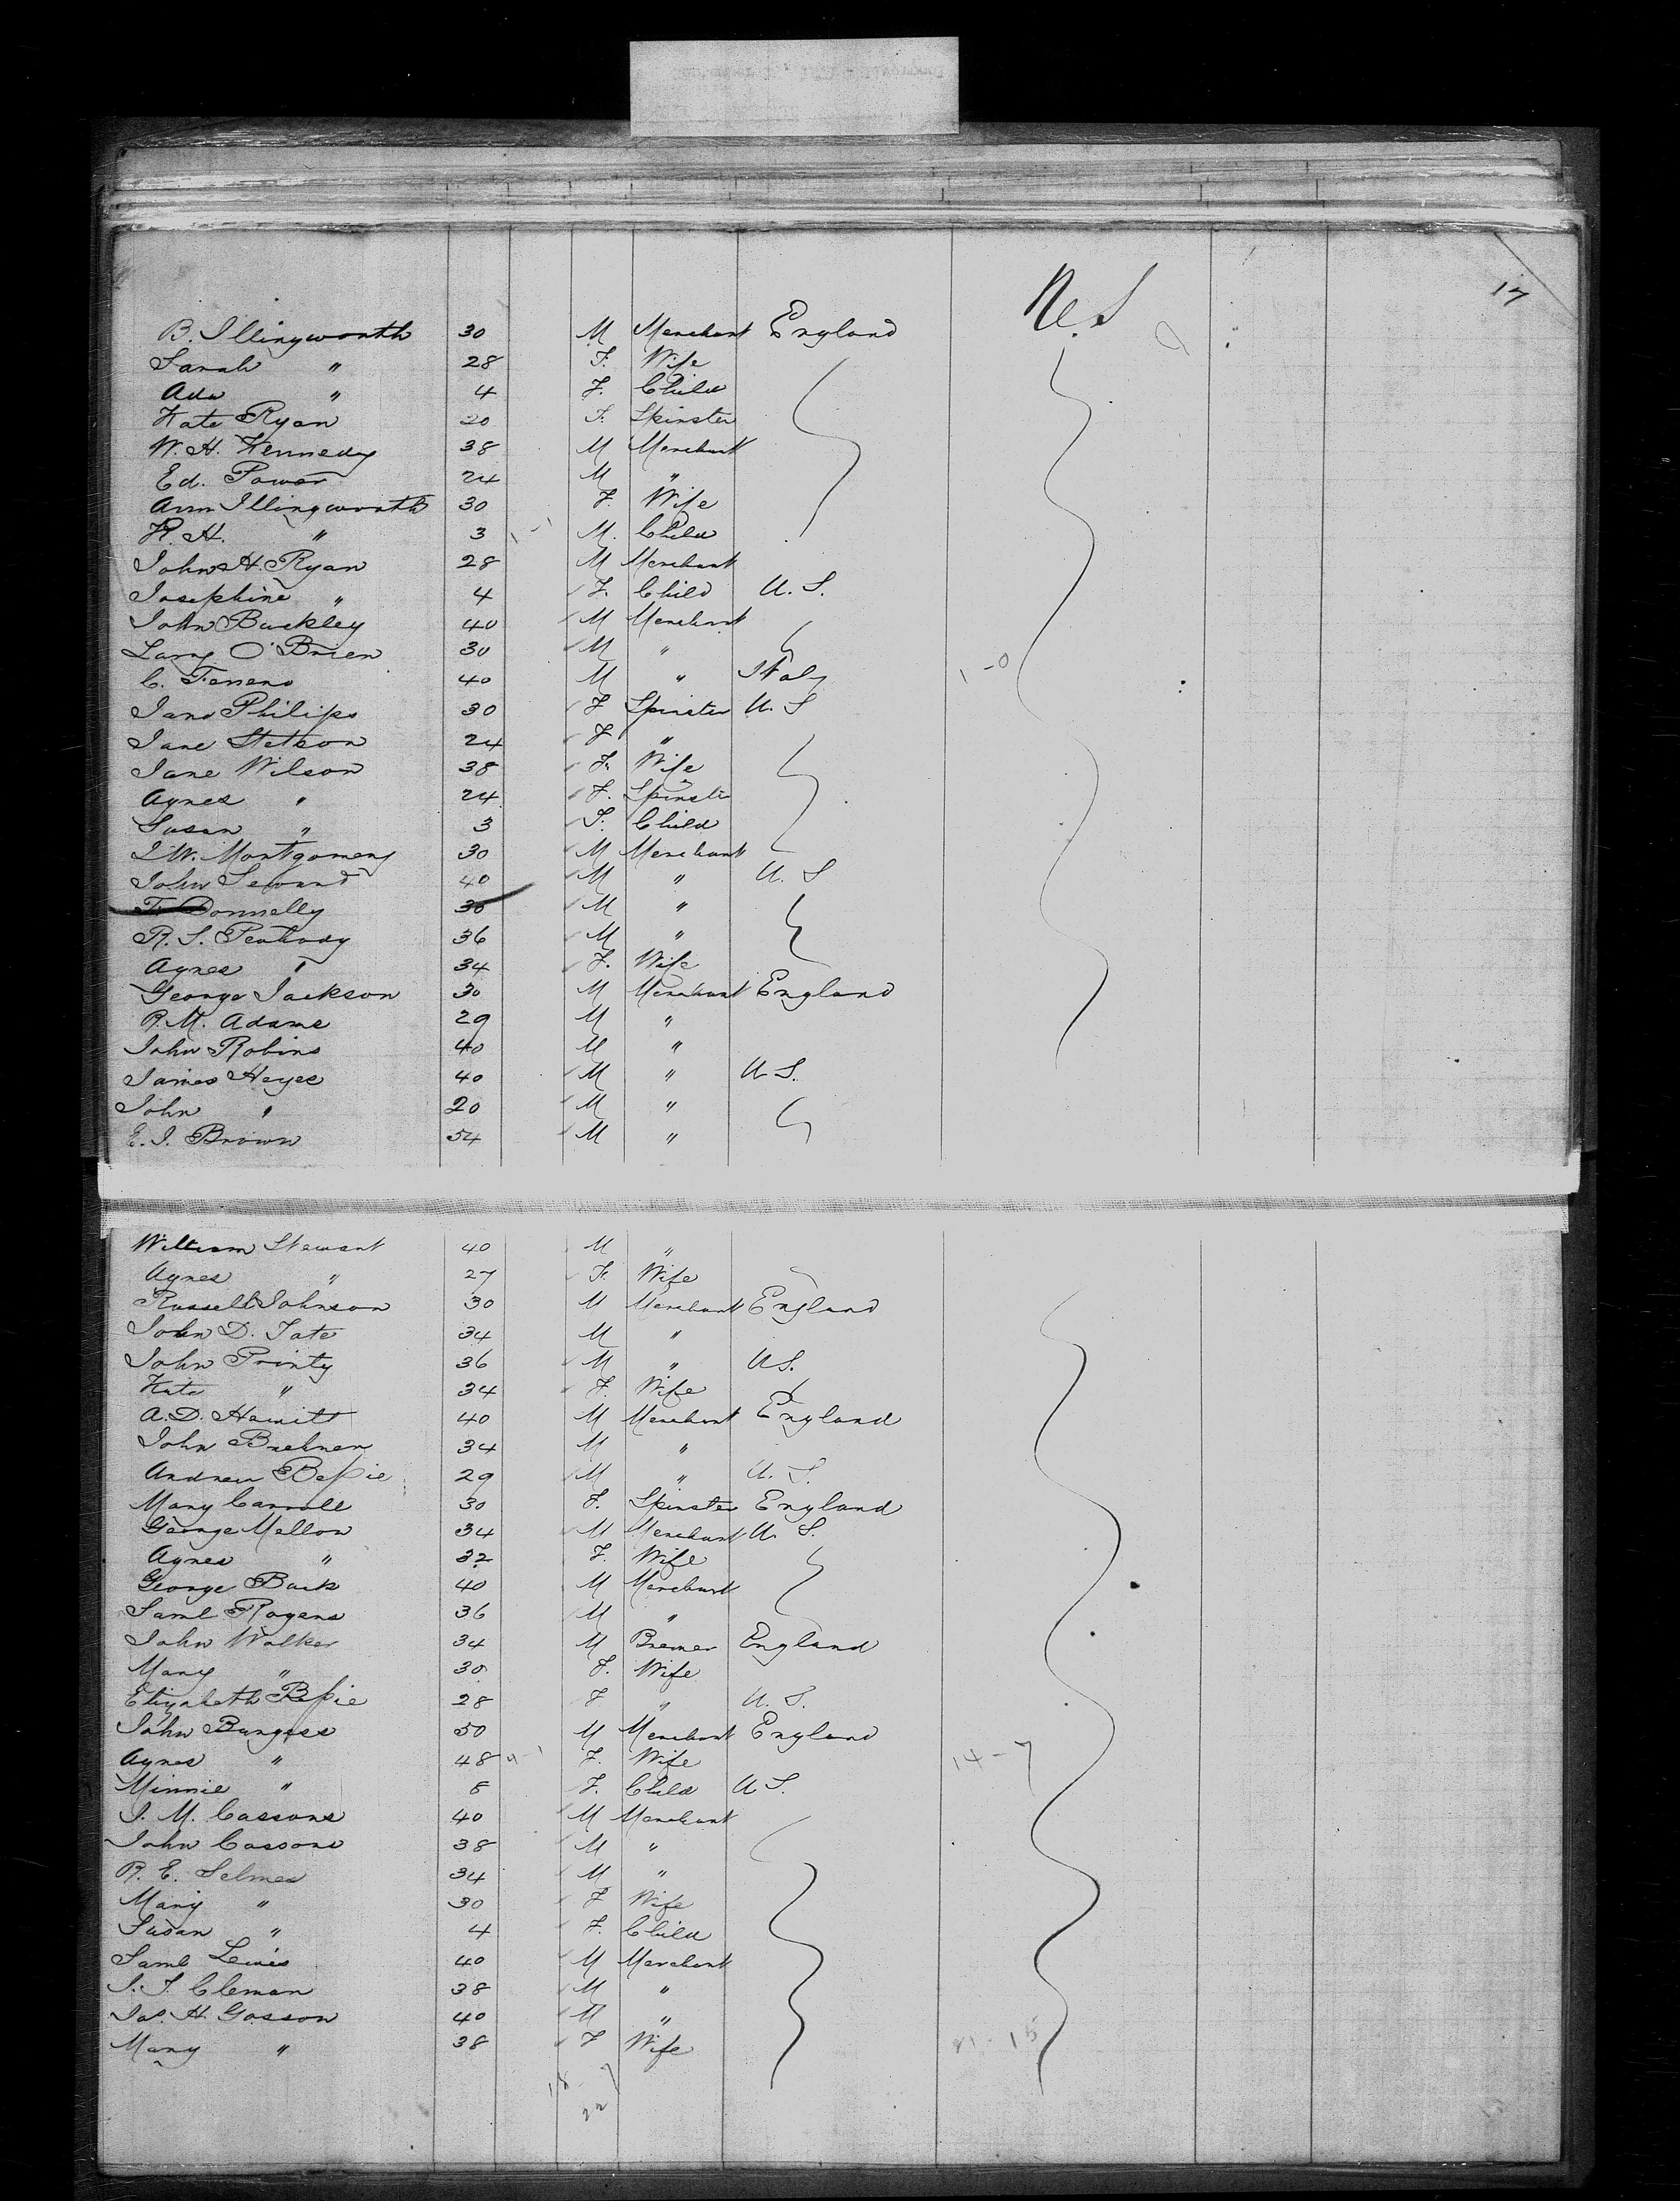 17
U.S
B. Illingworth 30 M Merchant England
Sarah " 28 F. Wife
Ada " 4 F. Child
Kate Ryan 20 F. Spinster
W. H. Kennedy 38 M Merchant
Ed. Power 24 M "
Ann Illingworth 30 F. Wife
H. H. " 3 M. Child
John H. Ryan 28 M Merchant
Josephine " 4 F. Child U. S.
John Buckley 40 M Merchant
Larry O'Brien 30 M "
C. Ferrero 40 M " Italy 1-0
Jane Philips 30 F Spinster U. S
Jane Stetson 24 F "
Jane Wilson 38 F. Wife
Agnes " 24 F. Spinster
Susan " 3 F. Child
J. W. Montgomery 30 M Merchant
John Seward 40 M " U. S
T. Donnelly 30 M "
R. S. Peabody 36 M "
Agnes " 34 F. Wife
George Jackson 30 M Merchant England
R. M. Adams 29 M "
John Robins 40 M "
James Hayes 40 M " U S.
John " 20 M "
E. J. Brown 54 M "
William Stewart 40 M "
Agnes " 27 F. Wife
Russell Johnson 30 M Merchant England
John D. Tate 34 M "
John Printy 36 M " U S.
Kate " 34 F. Wife
A. D. Hewitt 40 M Merchant England
John Brebner 34 M "
Andrew Bessie 29 M " U. S.
Mary Carroll 30 F. Spinster England
George Mellon 34 M Merchant U. S.
Agnes " 32 F. Wife
George Back 40 M Merchant
Saml Rogers 36 M "
John Walker 34 M Brewer England
Mary " 30 F. Wife
Elizabeth Bessie 28 F " U. S.
John Burgess 50 M Merchant England
Agnes " 48 F. Wife 14-7
Minnie " 8 F. Child U S.
J. M. Cassons 40 M Merchant
John Cassons 38 M "
R. E. Selmes 34 M "
Mary " 30 F Wife
Susan " 4 F. Child
Saml Lewis 40 M Merchant
J. T. Cleman 38 M "
Jas. H. Gasson 40 M "
Mary " 38 F Wife